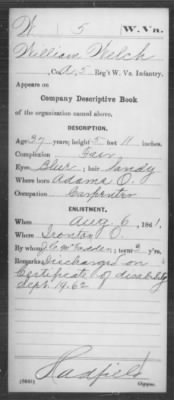 W 5 W. Va.
William Welch
, Co. A, 5 Reg't W. Va. Infantry.
Appears on
Company Descriptive Book
of the organization named above.
DESCRIPTION.
Age 27 years; height 5 feet 11 inches.
Complexion Fair
Eyes Blue; hair Sandy
Where born Adams O.
Occupation Carpenter
ENLISTMENT.
When Aug. 6, 1861.
Where Ironton O.
By whom J C McFadden; term 3 y'rs.
Remarks: Discharged on
Certificate of disability
Sept. 19. 62
Hadfield
Copyist.